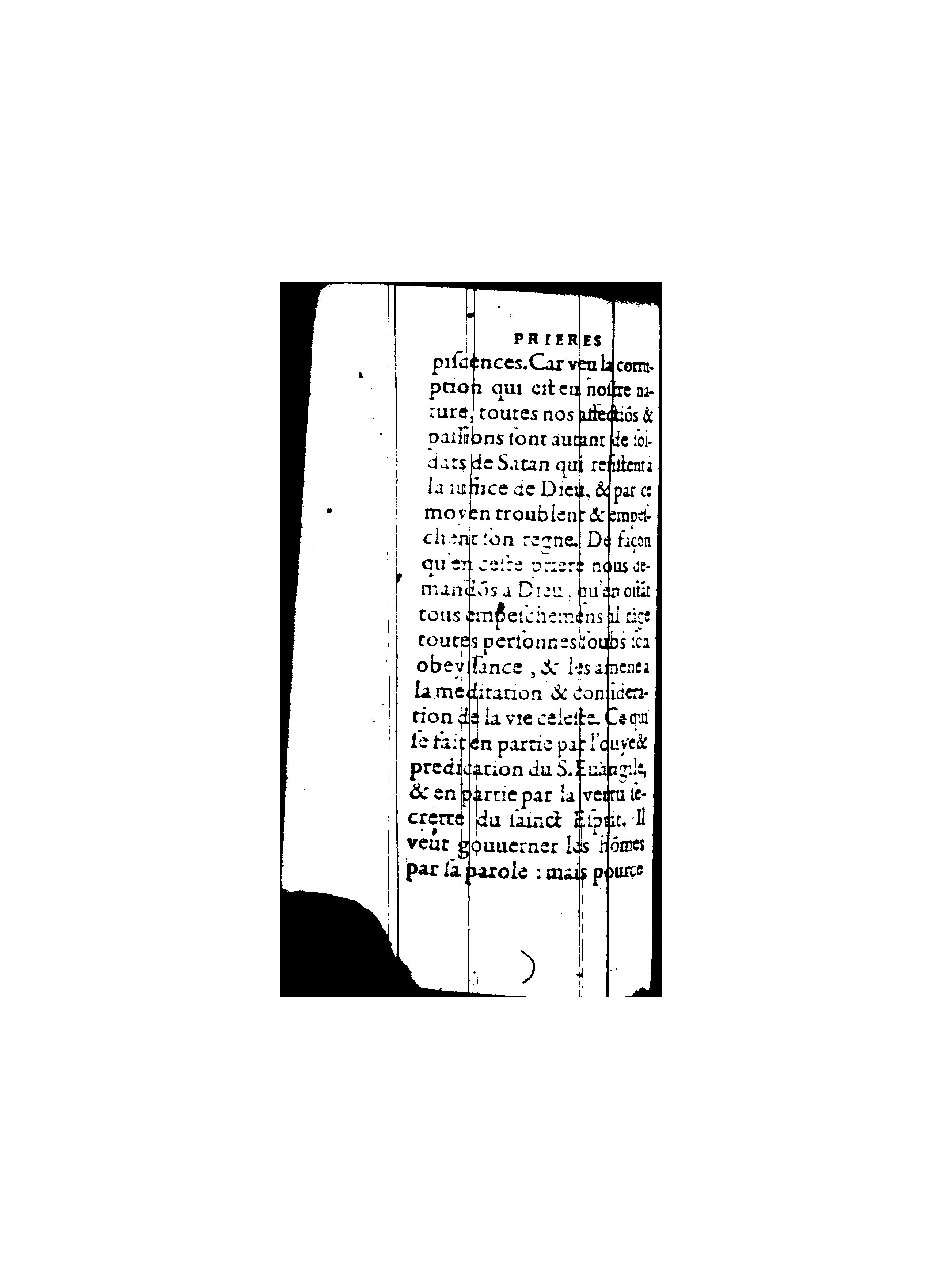 PRIERES
piſcences. Car veu la corru-
ption qui eſt en noſtre na-
ture, toutes nos affectiõs &
paſſions ſont autant de ſol-
dats de Satan qui reſiſtent a
la iuſtice de Dieu, & par ce
moyen troublent & empeſ-
chent ſon regne. De façon
qu'en ceſte priere nous de-
mandõs a Dieu, qu'en oſtãt
tous empeſchemens il rãge
toutes perſonnes ſoubs ſon
obeyſſance, & les amene a
la meditation & conſidera-
tion de la vie celeſte. Ce qui
ſe fait en partie par l'ouye &
predication du S. Euangile,
& en partie par la vertu ſe-
crette du ſainct Eſprit. Il
veut gouuerner les hõmes
par ſa parole : mais pource